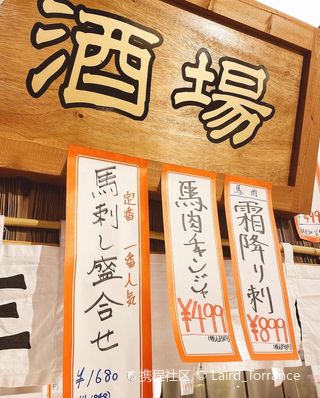 酒場
馬肉
霜降り刺
¥899
馬肉チャンジャ
¥499
定番 一番人気
馬刺し盛合せ
¥1680
携程社区 © Laird_Torrance